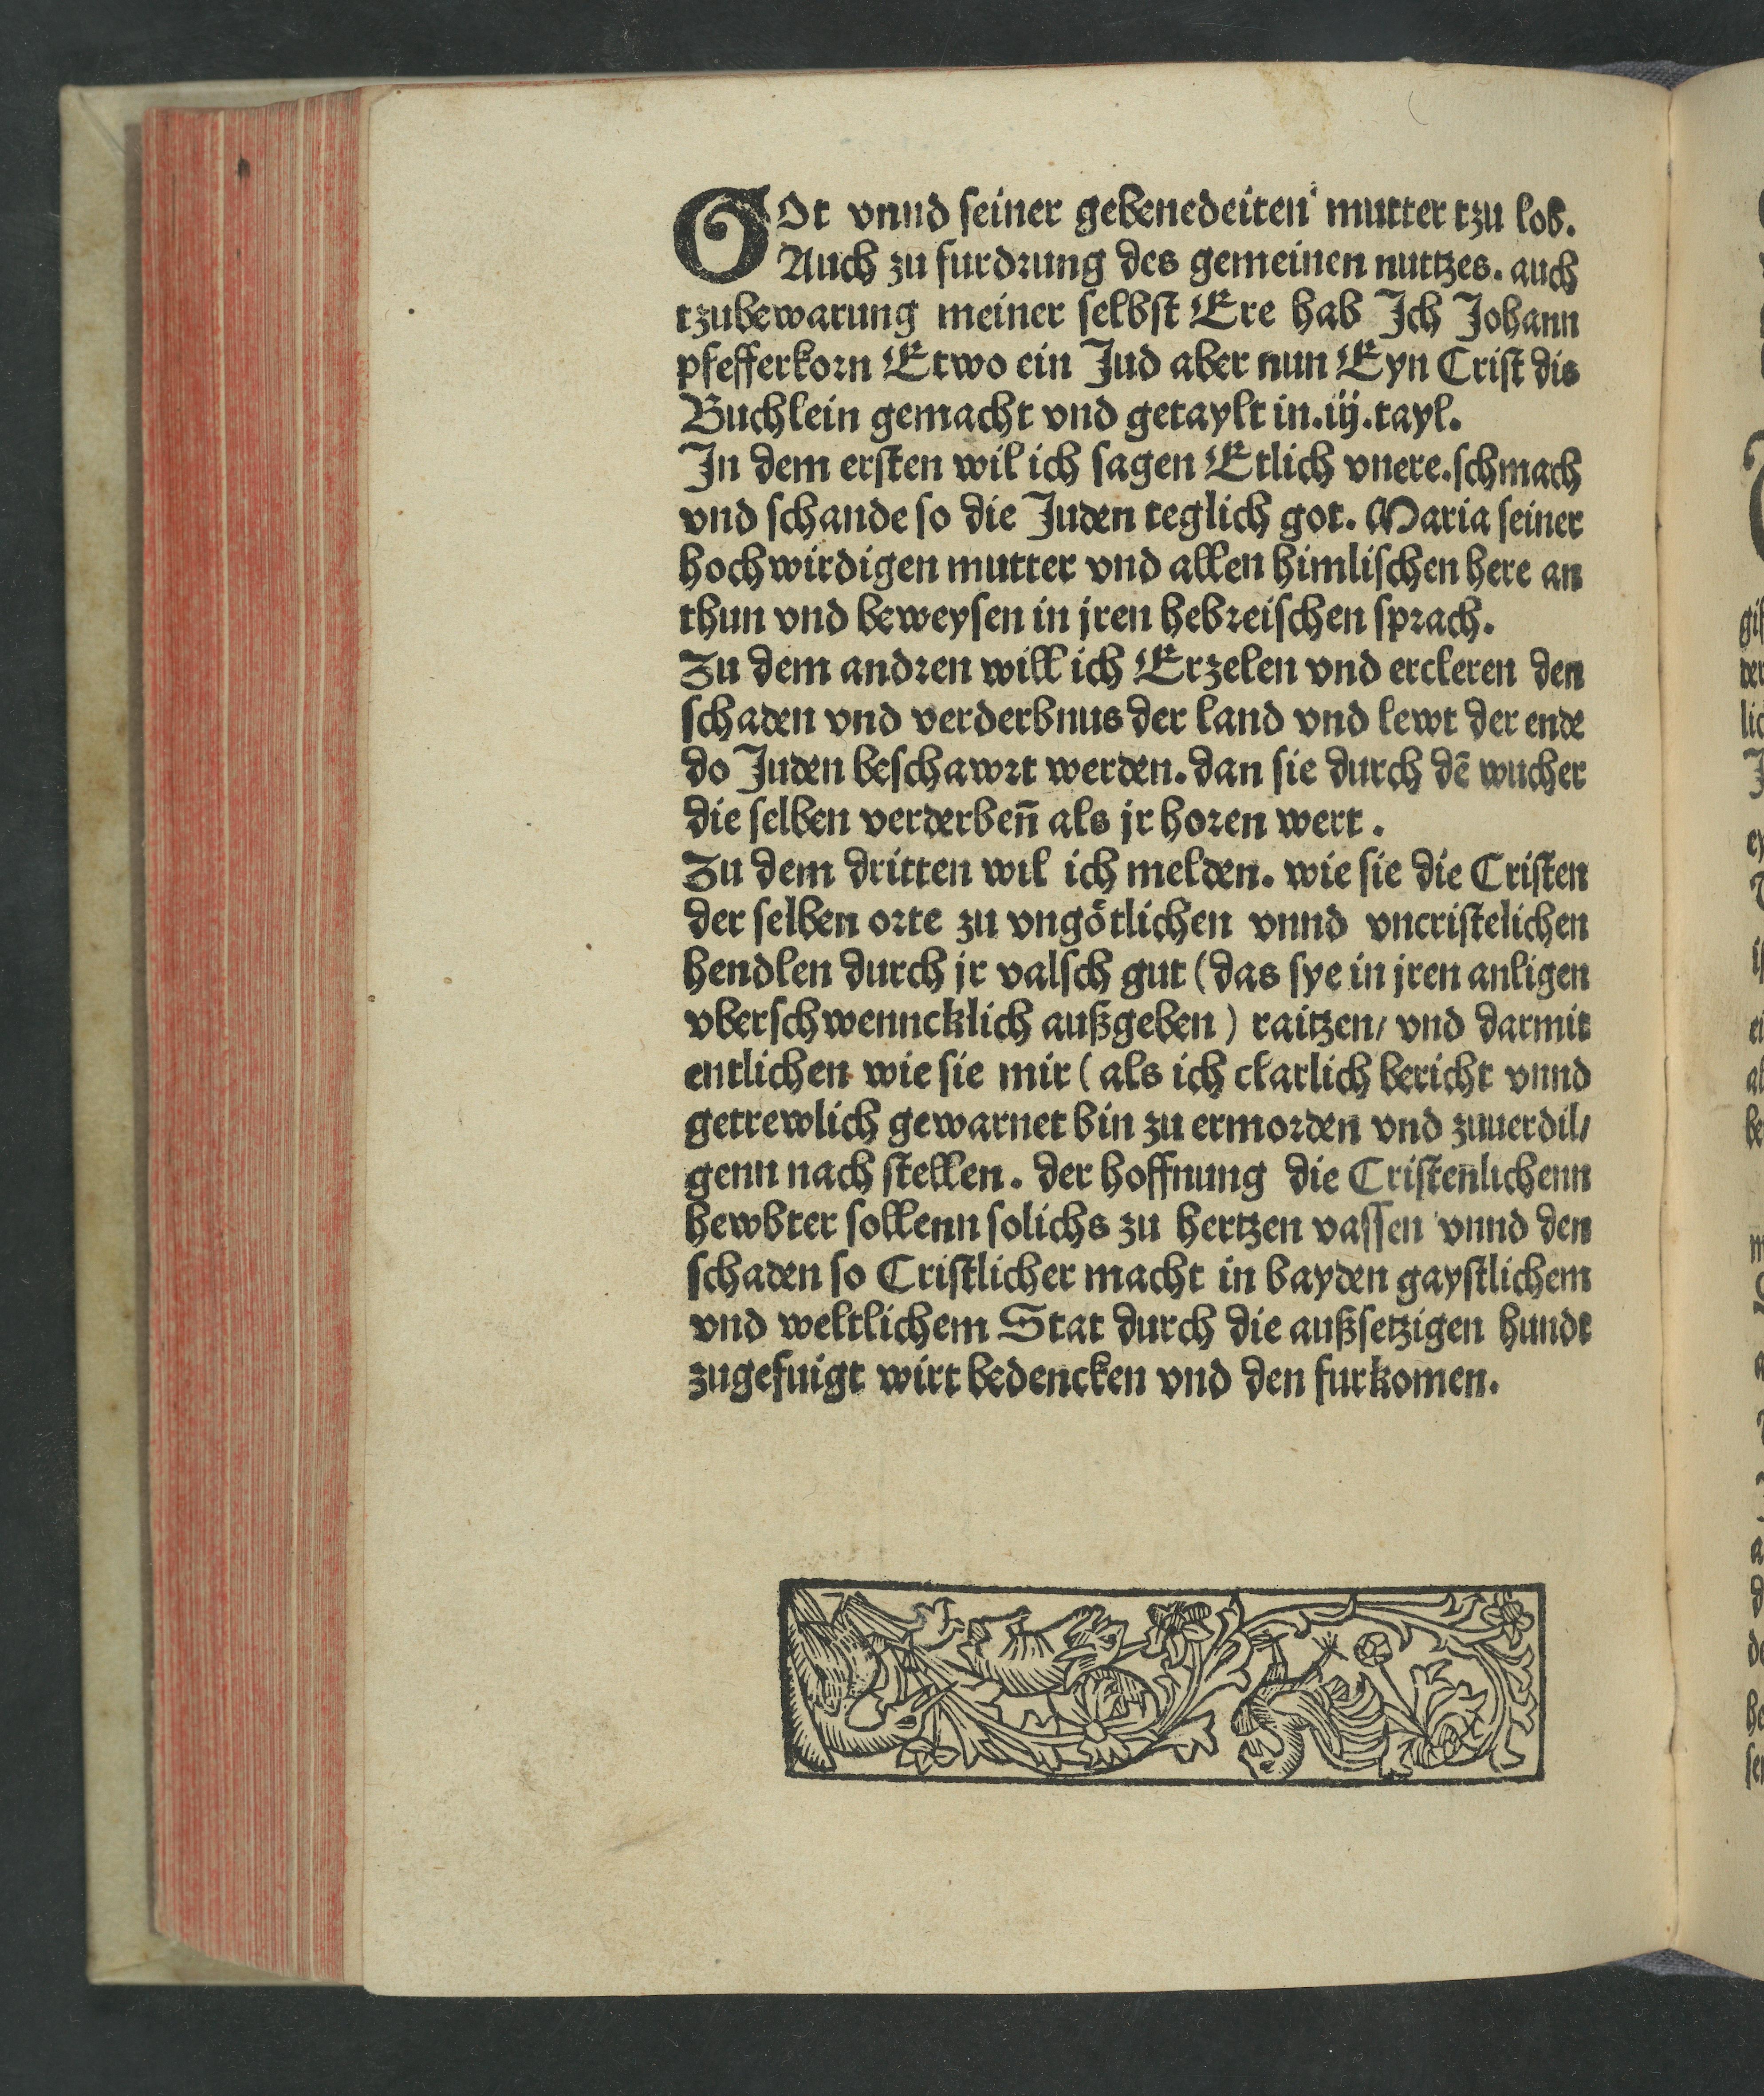 GOt vnnd seiner gebenedeiten mutter tzu lob.
Auch zu furdrung des gemeinen nuttzes. auch
tzubewarung meiner selbst Ere hab Ich Johann
pfefferkorn Etwo ein Jud aber nun Eyn Crist dis
Buchlein gemacht vnd getaylt in.iij.tayl.
In dem ersten wil ich sagen Etlich vnere.schmach
vnd schande so die Juden teglich got. Maria seiner
hochwirdigen mutter vnd allen himlischen here an
thun vnd beweysen in jren hebreischen sprach.
Zu dem andren will ich Erzelen vnd ercleren den
schaden vnd verderbnus der land vnd lewt der ende
do Juden beschawrt werden. dan sie durch dē wucher
die selben verderben̄ als jr horen wert.
Zu dem dritten wil ich melden. wie sie die Cristen
der selben orte zu vngötlichen vnnd vncristelichen
hendlen durch jr valsch gut (das sye in jren anligen
vberschwenncklich außgeben) raitzen/ vnd darmit
entlichen wie sie mir (als ich clarlich bericht vnnd
getrewlich gewarnet bin zu ermorden vnd zuuerdil/
genn nach stellen. der hoffnung die Cristen̄lichenn
hewbter sollenn solichs zu hertzen vassen vnnd den
schaden so Cristlicher macht in bayden gaystlichem
vnd weltlichem Stat durch die außsetzigen hundt
zugefuigt wirt bedencken vnd den furkomen.